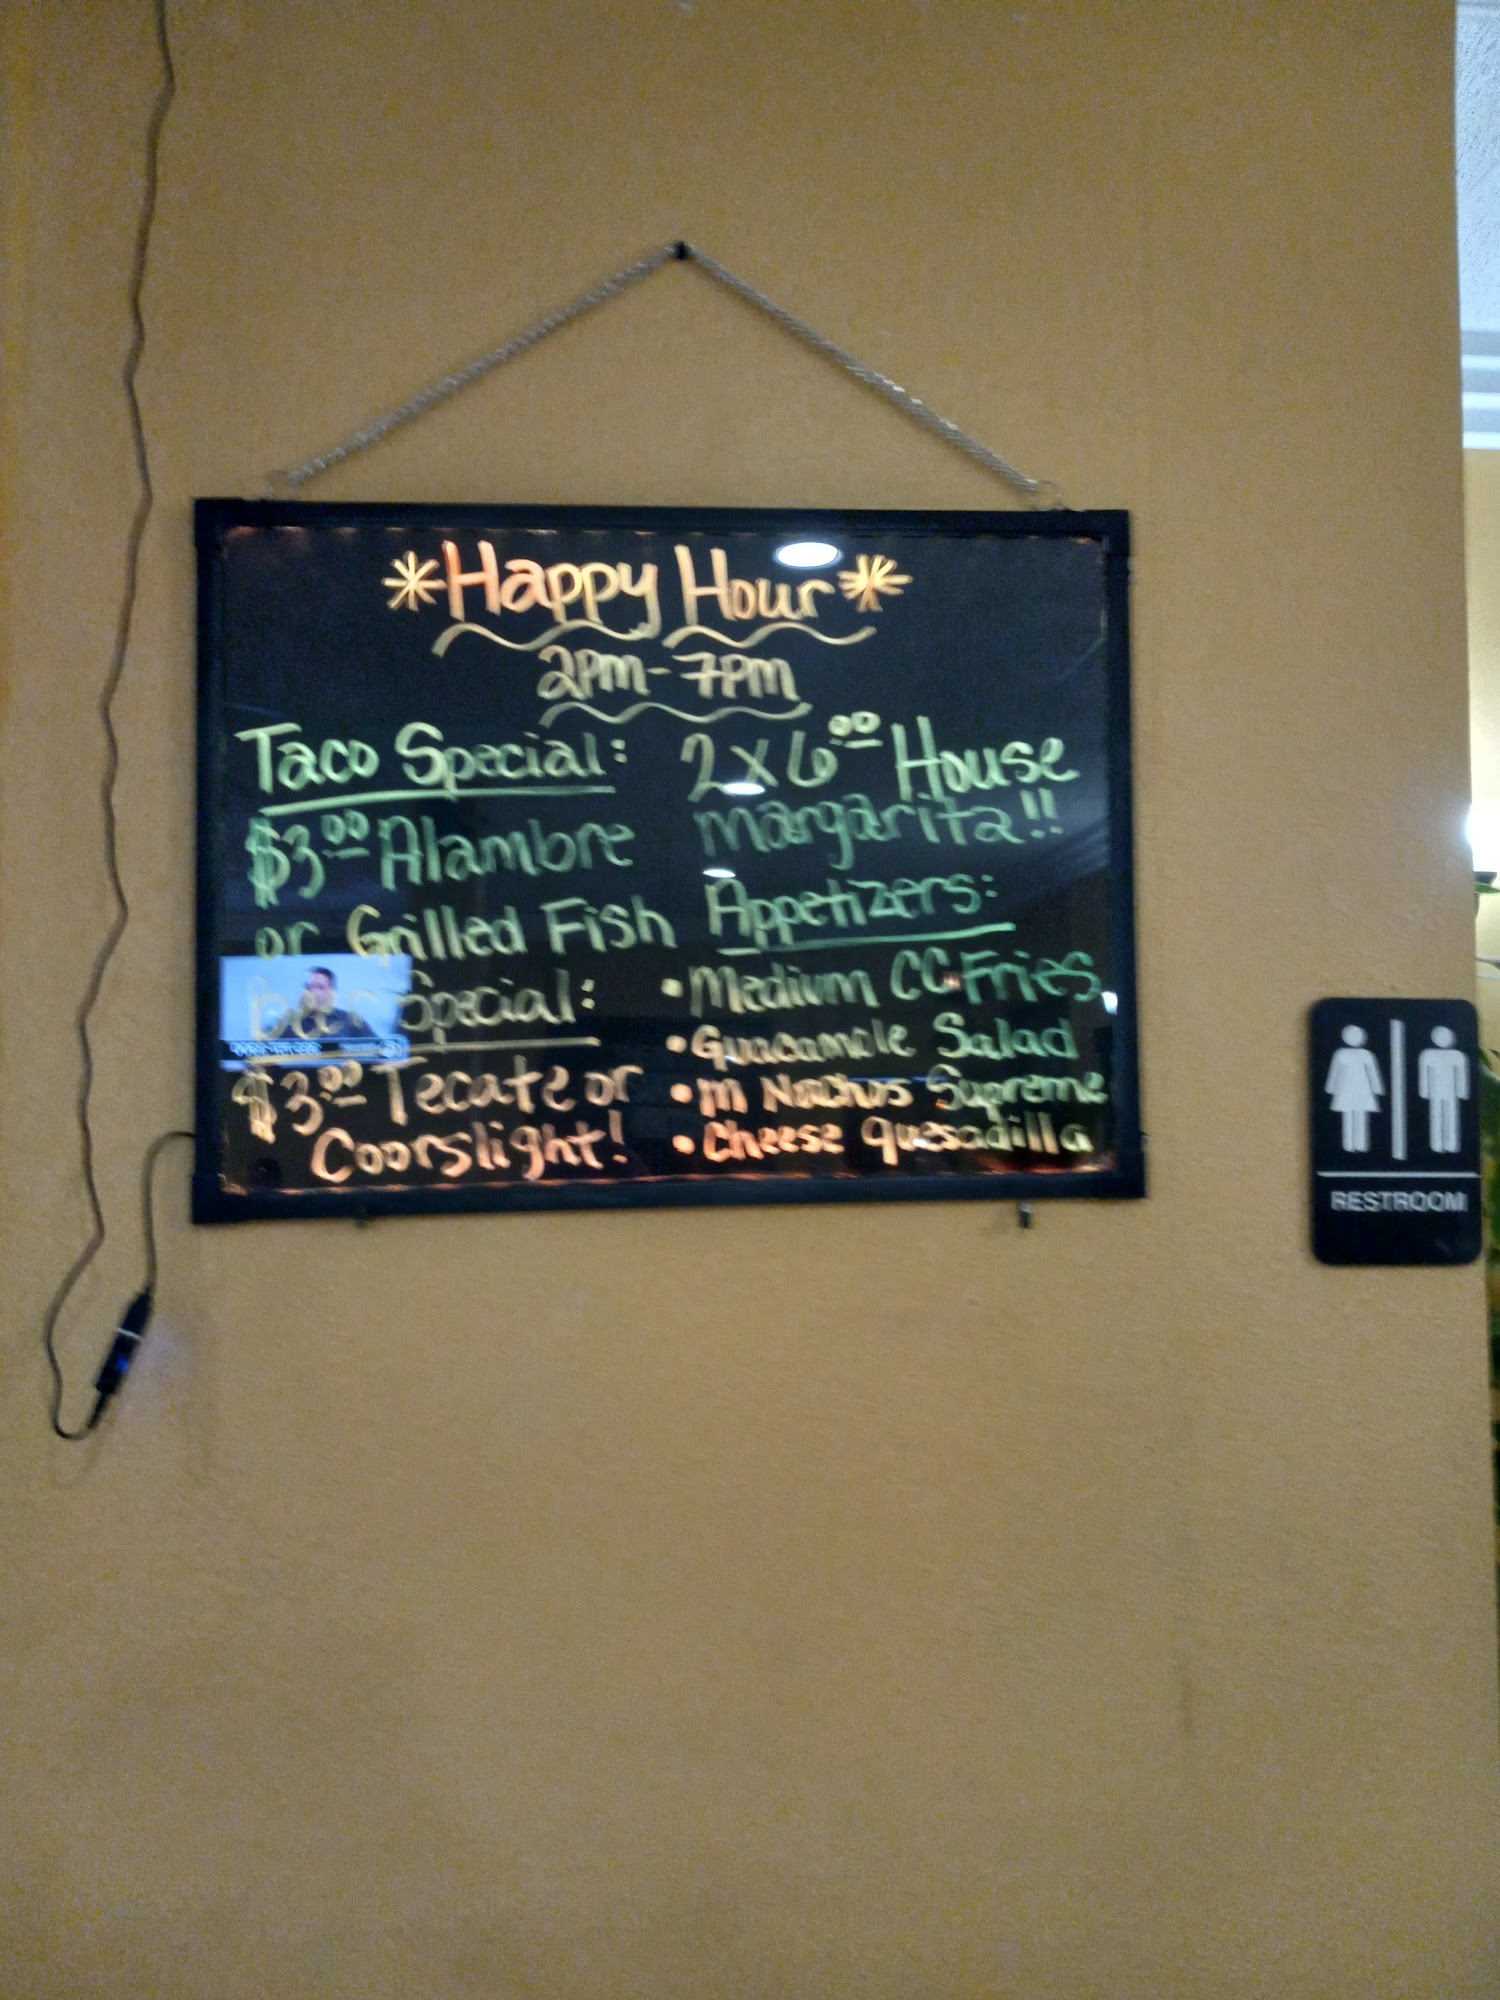 *Happy Hour*
2PM-7PM
Taco Special:
$3.00 Alambre
or Grilled Fish
Beer Special:
$3.00 Tecate or
Coorslight!
2 x 6.00 House
margarita!!
Appetizers:
• Medium CC Fries
• Guacamole Salad
• M Nachos Supreme
• Cheese quesadilla
RESTROOM